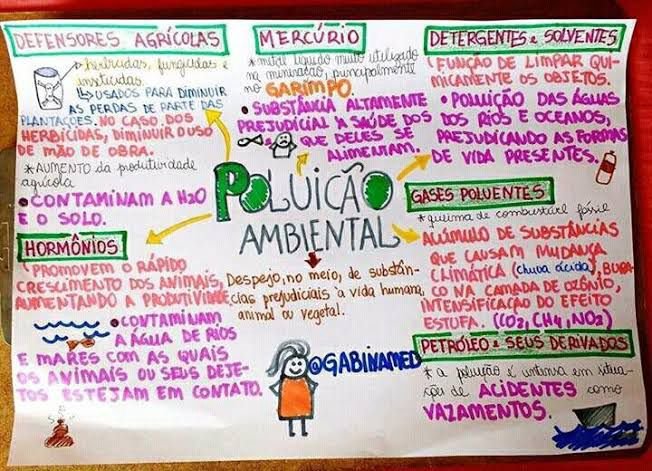 DEFENSORES AGRÍCOLAS
* herbicidas, fungicidas e
inseticidas.
↳ USADOS PARA DIMINUIR
AS PERDAS DE PARTE DAS
PLANTAÇÕES. NO CASO DOS
HERBICIDAS, DIMINUIR O USO
DE MÃO DE OBRA.
* AUMENTO da produtividade
agrícola
• CONTAMINAM A H2O
E O SOLO.
MERCÚRIO
* metal líquido muito utilizado
na mineração, principalmente
no GARIMPO.
• SUBSTÂNCIA ALTAMENTE
PREJUDICIAL À SAÚDE DOS
QUE DELES SE
ALIMENTAM.
DETERGENTES e SOLVENTES
* FUNÇÃO DE LIMPAR QUI-
MICAMENTE OS OBJETOS.
• POLUIÇÃO DAS ÁGUAS
DOS RIOS E OCEANOS,
PREJUDICANDO AS FORMAS
DE VIDA PRESENTES.
POLUIÇÃO
AMBIENTAL
Despejo, no meio, de substân-
cias prejudiciais à vida humana,
animal ou vegetal.
HORMÔNIOS
* PROMOVEM O RÁPIDO
CRESCIMENTO DOS ANIMAIS,
AUMENTANDO A PRODUTIVIDADE
• CONTAMINAM
A ÁGUA DE RIOS
E MARES COM AS QUAIS
OS ANIMAIS OU SEUS DEJE-
TOS ESTEJAM EM CONTATO.
GASES POLUENTES
* queima de combustível fóssil
ACÚMULO DE SUBSTÂNCIAS
QUE CAUSAM MUDANÇA
CLIMÁTICA (chuva ácida), BURA-
CO NA CAMADA DE OZÔNIO,
INTENSIFICAÇÃO DO EFEITO
ESTUFA. (CO2, CH4, NO2)
PETRÓLEO e SEUS DERIVADOS
* a poluição é intensa em situa-
ções de ACIDENTES como
VAZAMENTOS.
@GABINAMED